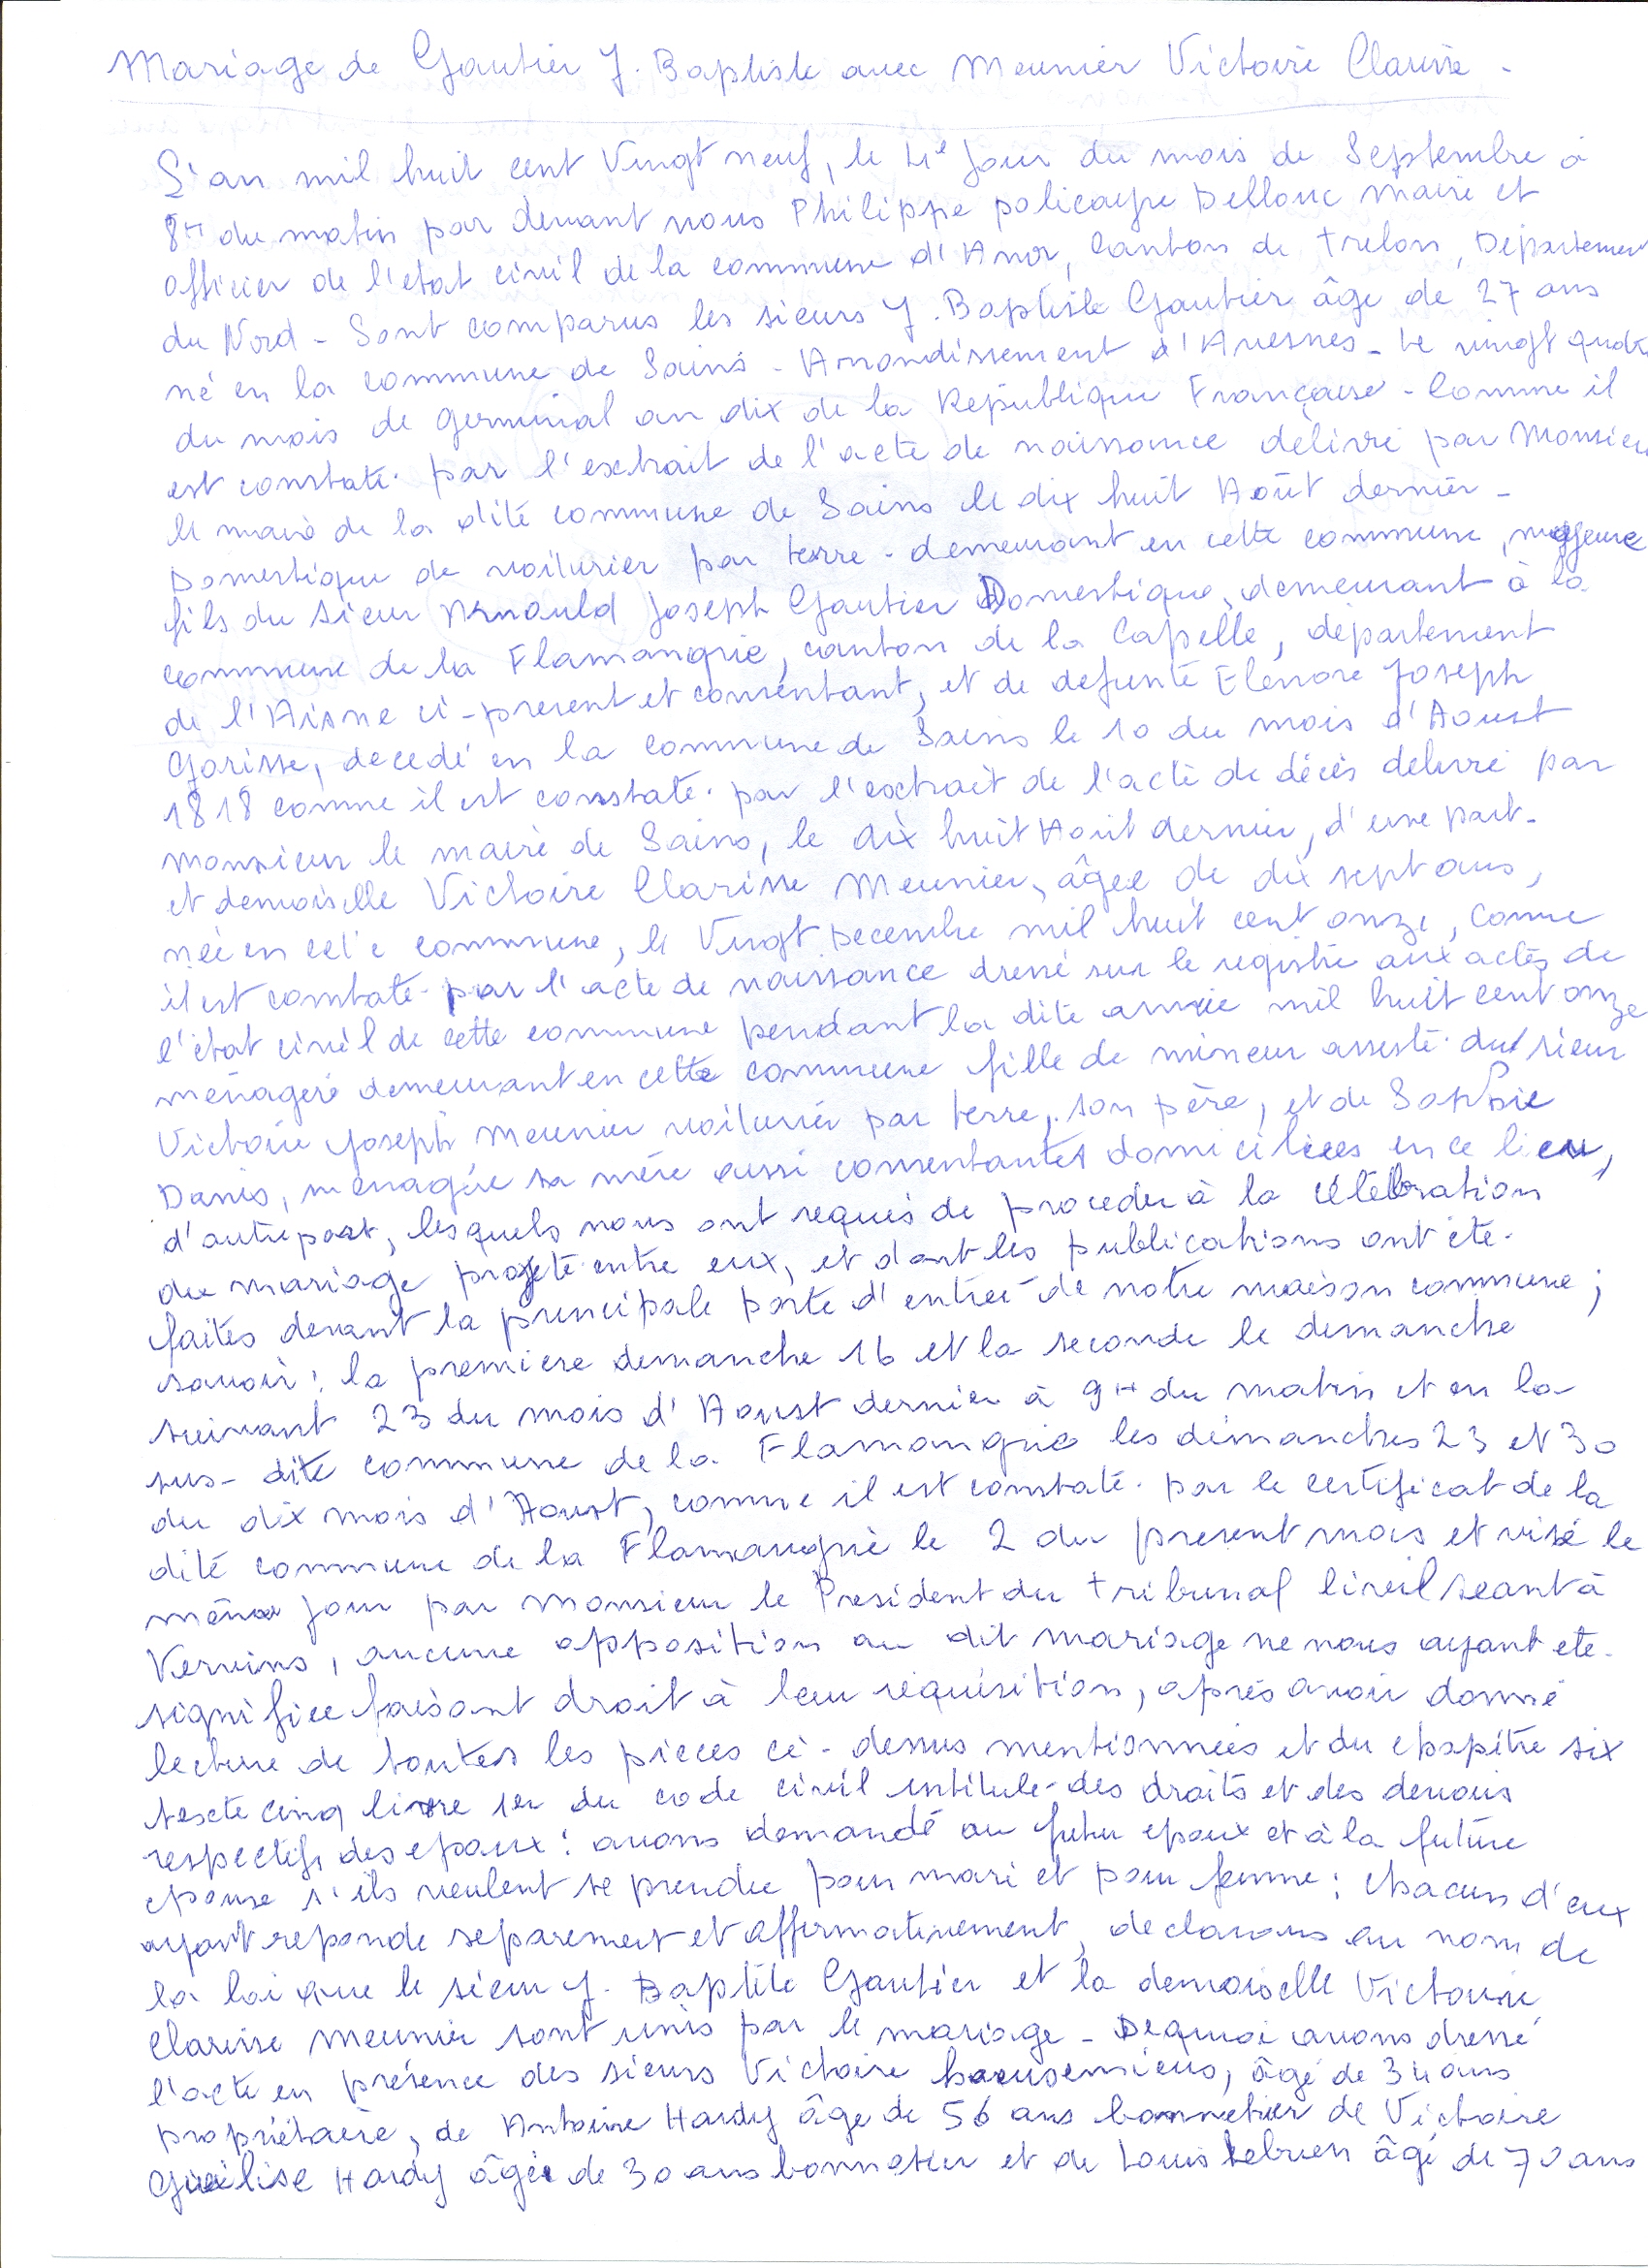 Mariage de Gautier J. Baptiste avec Meunier Victoire Clarisse -
L'an mil huit cent Vingt neuf, le 4e Jour du mois de Septembre à
8H du matin par devant nous Philippe policarpe Dellouc maire et
officier de l'etat civil de la commune d'Anor, Canton de trelon, Departement
du Nord - Sont comparus les sieurs J. Baptiste Gautier âge de 27 ans
né en la commune de Sains - Arrondissement d'Avesnes - Le vingt quatre
du mois de germinal an dix de la République Française - Comme il
est constaté par l'extrait de l'acte de naissance délivré par Monsieur
le maire de la dite commune de Sains le dix huit Août dernier -
Domestique de voiturier par terre - demeurant en cette commune, majeure
fils du sieur Arnould Joseph Gautier Domestique, demeurant à la
commune de la Flamangrie, canton de la Capelle, département
de l'Aisne ci-present et consentant, et de defunte Elenore Joseph
Gorisse, decedé en la commune de Sains le 10 du mois d'Aoust
1818 comme il est constaté par l'extrait de l'acte de décès delivré par
monsieur le maire de Sains, le dix huit Août dernier, d'une part -
et demoiselle Victoire Clarisse Meunier, âgée de dix sept ans,
née en cette commune, le Vingt Decembre mil huit cent onze, comme
il est constaté par l'acte de naissance dressé sur le registre aux actes de
l'état civil de cette commune pendant la dite année mil huit cent onze
ménagère demeurant en cette commune fille de mineur assisté du sieur
Victoire Joseph Meunier voiturier par terre, son père, et de Sophie
Danis, ménagère sa mère aussi consentantes domiciliées en ce lieu,
d'autre part, lesquels nous ont requis de proceder à la célébration
du mariage projeté entre eux, et dont les publications ont été
faites devant la principale porte d'entrée de notre maison commune ;
savoir : la premiere dimanche 16 et la seconde le dimanche
suivant 23 du mois d'Aoust dernier à 9H du matin et en la
sus-dite commune de la Flamangrie les dimanches 23 et 30
du dix mois d'Aoust, comme il est constaté par le certificat de la
dite commune de la Flamangrie le 2 du present mois et visé le
même jour par monsieur le President du tribunal Civil seant à
Vervins, aucune opposition au dit mariage ne nous ayant ete
signifiee faisant droit à leur réquisition, après avoir donné
lecture de toutes les pieces ci-dessus mentionnées et du chapitre six
texte cinq livre 1er du code civil intitulé des droits et des devoirs
respectifs des epoux : avons demandé au futur epoux et à la future
epouse s'ils veulent se prendre pour mari et pour femme : chacun d'eux
ayant reponde separement et affirmativement, declarons au nom de
la loi que le sieur J. Baptiste Gautier et la demoiselle Victoire
Clarisse Meunier sont unis par le mariage - De quoi avons dressé
l'acte en présence des sieurs Victoire âgé de 34 ans
propriétaire, de Antoine Hardy âge de 56 ans bonnetier de Victoire
Hardy âgée de 30 ans bonnetier et de Louis Lebrun âgé de 70 ans